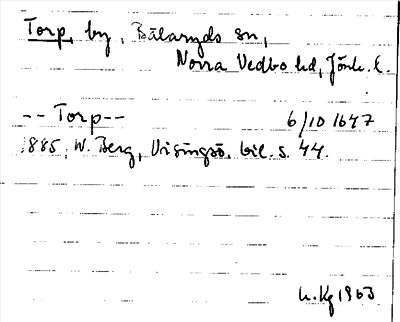 Torp, by, Bälaryds sn,
Norra Vedbo hd, Jönk. l.
-- Torp -- 6/10 1647
1885, W. Berg, Visingsö, bil. s. 44.
1963